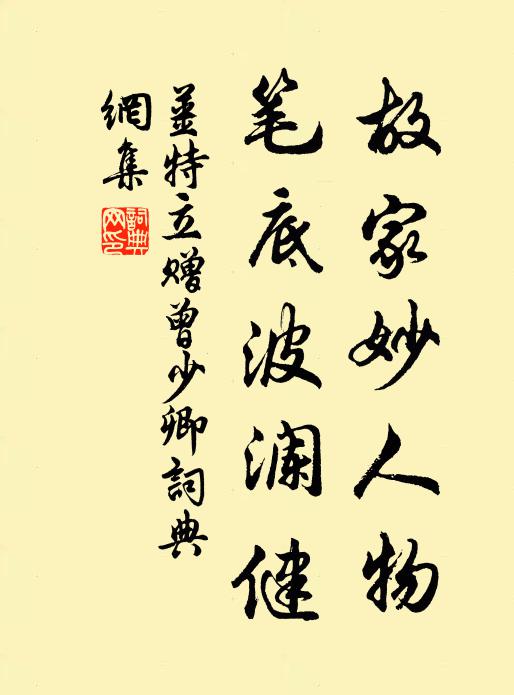 故家妙人物
笔底波澜健
姜特立赠曾少卿詞典
網集
詞典网印